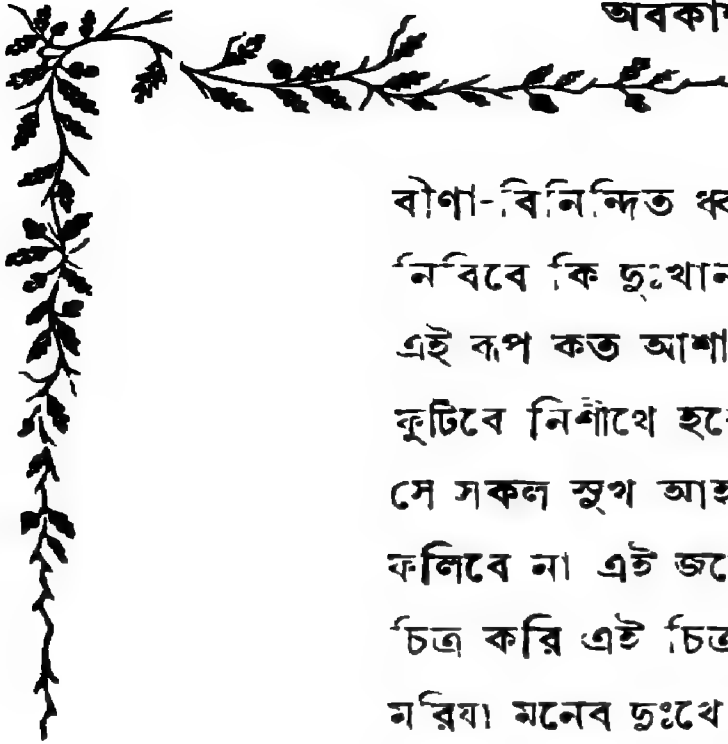 অবকা
বীণা-বিনিন্দিত
নিবিবে কি
এই ৰূপ কত আশা
ফুটিবে নিশীথে
সে সকল সুখ
ফলিবে না এই
চিত্র করি এই
মরিযা মনেব দুঃখে